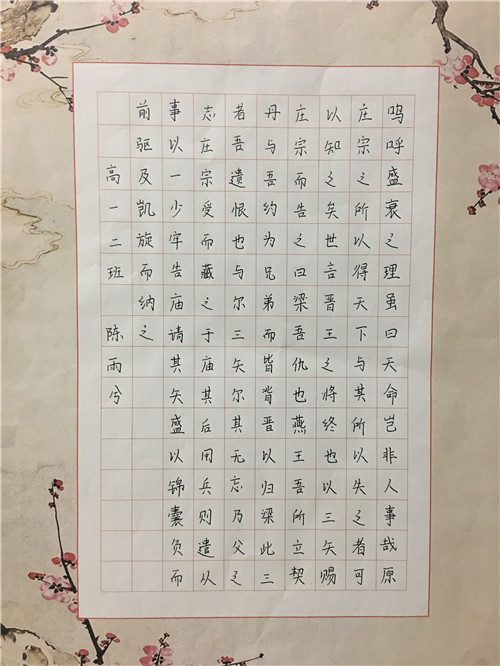 呜呼盛衰之理虽曰天命岂非人事哉原
庄宗之所以得天下与其所以失之者可
以知之矣世言晋王之将终也以三矢赐
庄宗而告之曰梁吾仇也燕王吾所立契
丹与吾约为兄弟而皆背晋以归梁此三
者吾遗恨也与尔三矢尔其无忘乃父之
志庄宗受而藏之于庙其后用兵则遣从
事以一少牢告庙请其矢盛以锦囊负而
前驱及凯旋而纳之
高一二班 陈雨兮